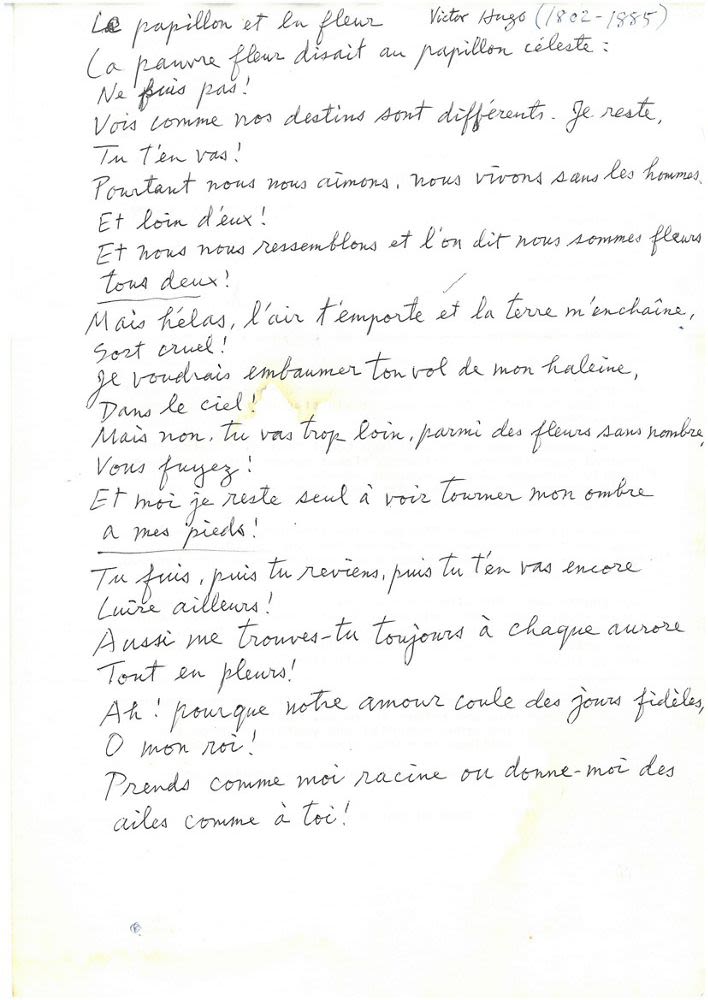 Le papillon et la fleur Victor Hugo (1802-1885)
La pauvre fleur disait au papillon céleste :
Ne fuis pas !
Vois comme nos destins sont différents. Je reste,
Tu t'en vas !
Pourtant nous nous aimons, nous vivons sans les hommes.
Et loin d'eux !
Et nous nous ressemblons et l'on dit nous sommes fleurs
tous deux !
Mais hélas, l'air t'emporte et la terre m'enchaîne,
Sort cruel !
Je voudrais embaumer ton vol de mon haleine,
Dans le ciel !
Mais non, tu vas trop loin, parmi des fleurs sans nombre,
Vous fuyez !
Et moi je reste seul à voir tourner mon ombre
a mes pieds !
Tu fuis, puis tu reviens, puis tu t'en vas encore
Luire ailleurs !
Aussi me trouves-tu toujours à chaque aurore
Tout en pleurs !
Ah ! pourque notre amour coule des jours fidèles,
O mon roi !
Prends comme moi racine ou donne-moi des
ailes comme à toi !